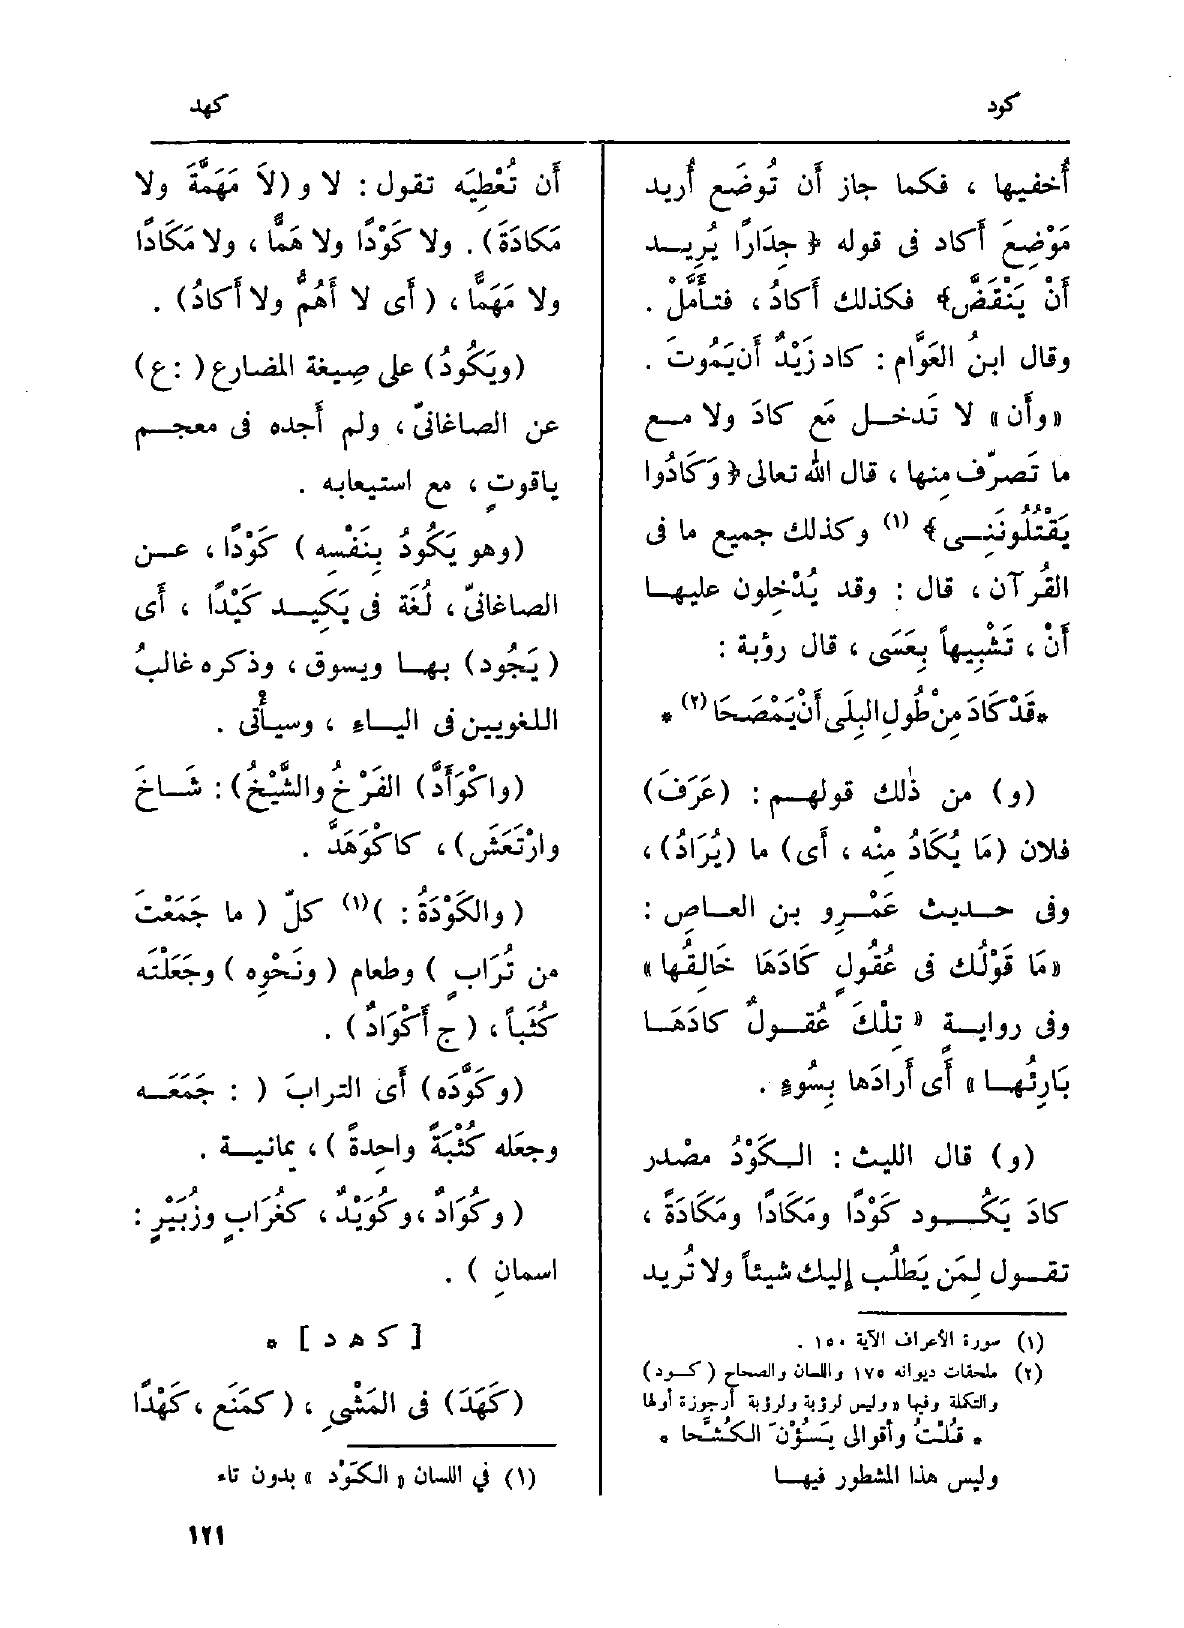 كود
كهد
أُخفيها ، فكما جاز أَن تُوضَع أُريد
مَوْضِعَ أَكاد فى قوله ﴿ جِدَارًا يُرِيــد
أَنْ يَنْقَضَّ﴾ فكذلك أَكادُ ، فتأَمَّلْ .
وقال ابنُ العَوَّام : كاد زَيْدٌ أَن يَمُوتَ .
«وأَن» لا تَدخــل مَع كادَ ولا مــع
ما تَصرَّف منها ، قال الله تعالى ﴿ وَكَادُوا
يَقْتُلُونَنِــى﴾ (١) وكذلك جميع ما فى
القُرآن ، قال : وقد يُدْخِلون عليهــا
أَنْ ، تَشْبِيهاً بِعَسَى ، قال رؤبة :
*قَدْ كَادَ مِنْ طُولِ البِلَى أَنْ يَمْصَحَا (٢) *
(و) من ذٰلك قولهــم : (عَرَفَ)
فلان (مَا يُكَادُ مِنْه ، أَى) ما (يُرَادُ) ،
وفى حــديث عَمْــرو بن العــاصِ :
«مَا قَوْلُك فى عُقُولٍ كَادَهَا خَالِقُها»
وفى روايــة « تِلْكَ عُقــولٌ كادَهَــا
بَارِئُهــا » أَى أَرادَها بِسُوءٍ .
(و) قال الليث : الــكَوْدُ مصْدر
كادَ يَكُــــود كَوْدًا ومَكَادًا ومَكَادَةً ،
تقــول لِمَن يَطلُب إليك شيئاً ولا تُريد
(١) سورة الأعراف الآية ١٥٠ .
(٢) ملحقات ديوانه ١٧٥ واللسان والصحاح ( كــود )
والتكملة وفيها « وليس لرؤبة ولرؤبة أرجوزة أولها
* قُلْتُ وأقوالى يَسُؤْنَ الكُشَّحا *
وليس هذا المشطور فيهــا
أَن تُعْطِيَه تقول : لا و (لاَ مَهَمَّةَ ولا
مَكادَةَ) . ولا كَوْدًا ولا هَمًّا ، ولا مَكَادًا
ولا مَهَمًّا ، ( أَى لا أَهُمُّ ولا أَكادُ) .
(ويَكُودُ) على صِيغة المضارع ( : ع)
عن الصاغانىّ ، ولم أَجده فى معجــم
ياقوتٍ ، مع استيعابه .
(وهو يَكُودُ بِنَفْسِه ) كَوْدًا ، عــن
الصاغانىّ ، لُغَة فى يَكِيــد كَيْدًا ، أَى
( يَجُود) بهــا ويسوق ، وذكره غالبُ
اللغويين فى اليــاء ، وسيأْتى .
(واكْوَأَدَّ) الفَرْخُ والشَّيْخُ) : شَــاخَ
وارْتَعَشَ) ، كاكْوَهَدَّ .
( والكَوْدَةُ : )(١) كلّ ( ما جَمَعْتَ
من تُرَابٍ ) وطعام ( ونَحْوِه ) وجَعَلْتَه
كُثَباً ، ( ج أَكْوَادٌ ) .
(وكَوَّدَه) أَى الترابَ ( : جَمَعَــه
وجعَله كُثْبَةً واحِدةً ) ، يمانيــة .
( وكُوَادٌ ، وكُوَيْدٌ ، كغُرَابٍ وزُبَيْرٍ :
اسمانِ ) .
[ ك ه د ] *
(كَهَدَ) فى المَشْىِ ، ( كمَنَع ، كَهْدًا
(١) في اللسان « الكَوْد » بدون تاء
١٢١